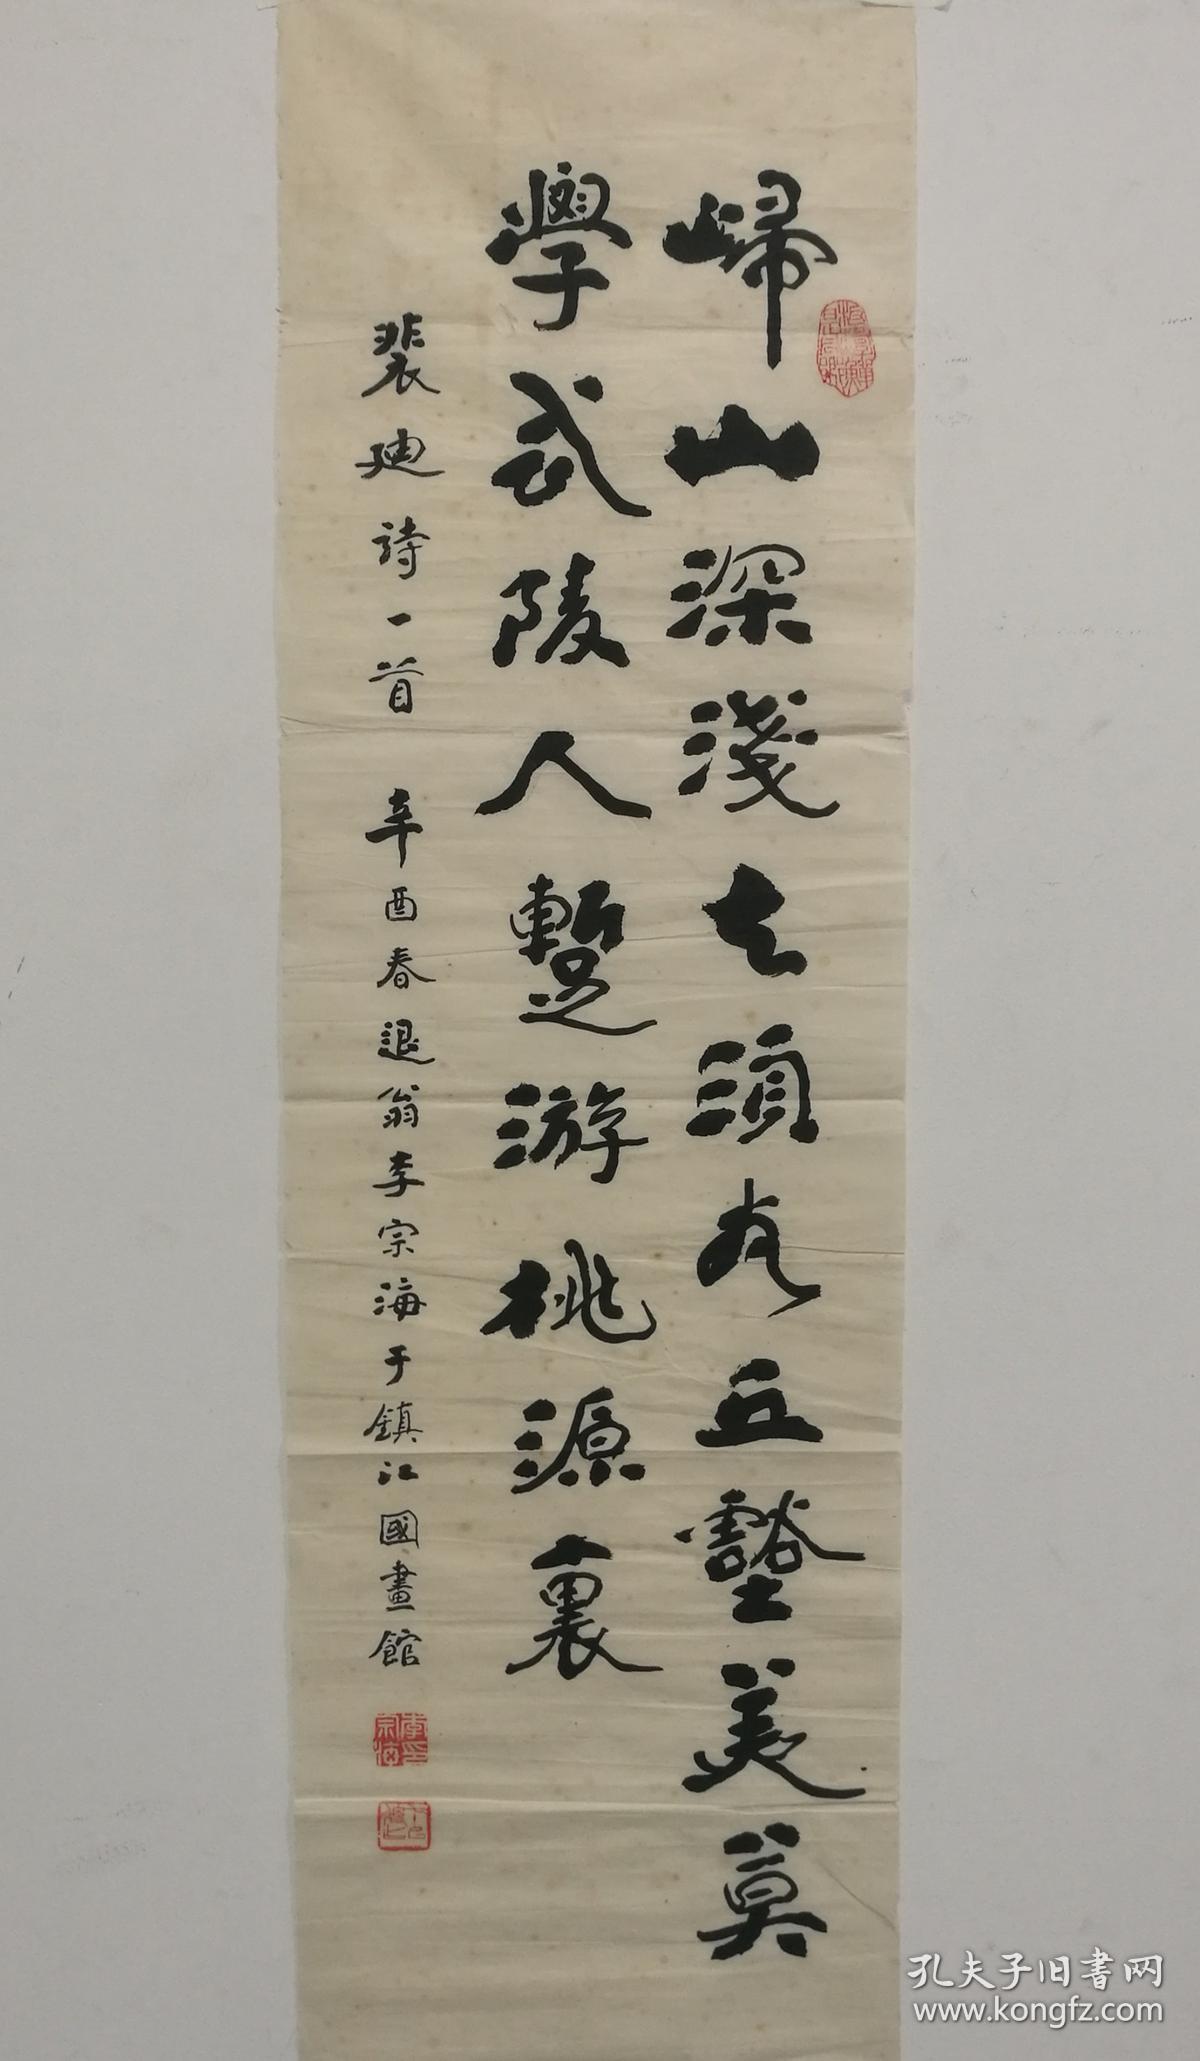 歸山深淺去須盡丘壑美莫
學武陵人暫游桃源裏
裴迪詩一首 辛酉春退翁李宗海于鎮江國畫館
李宗海印
孔夫子旧書网
www.kongfz.com